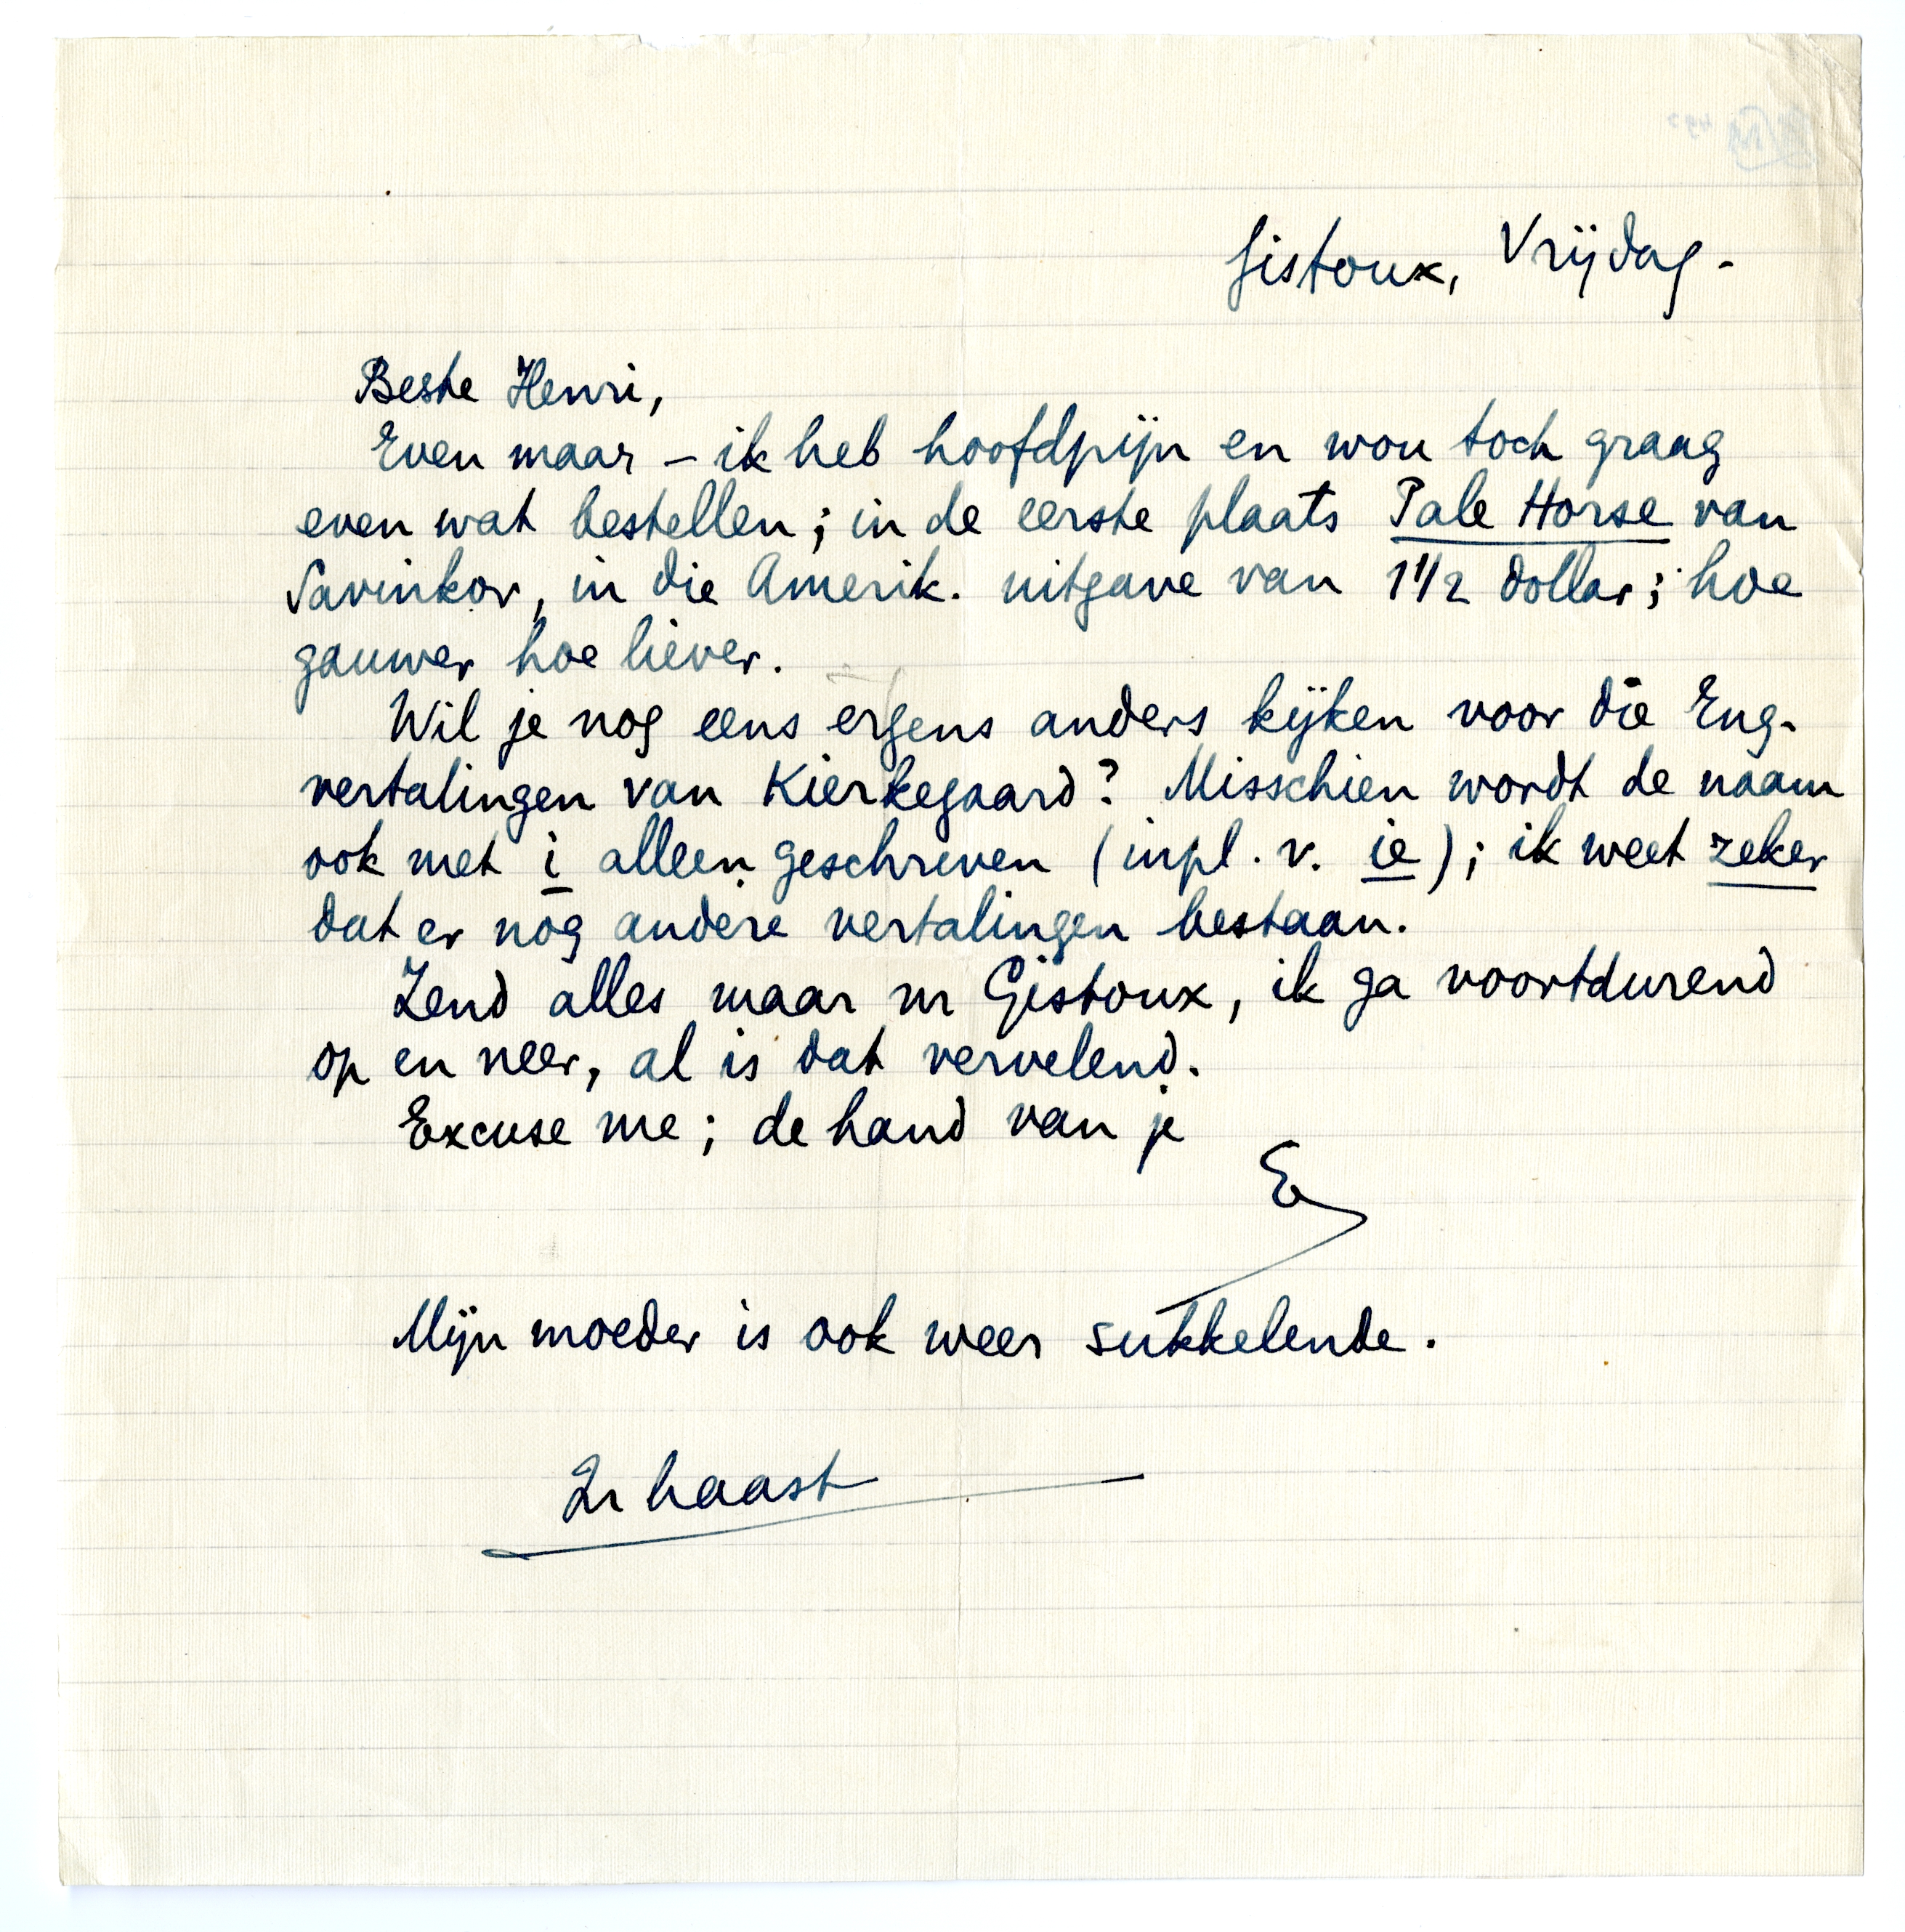 Gistoux, Vrijdag -
Beste Henri,
Even maar – ik heb hoofdpijn en wou toch graag
even wat bestellen; in de eerste plaats Pale Horse van
Savinkov, in die Amerik. uitgave van 1 1/2 dollar; hoe
gauwer hoe liever.
Wil je nog eens ergens anders kijken voor die Eng.
vertalingen van Kierkegaard? Misschien wordt de naam
ook met i alleen geschreven (inpl. v. ie); ik weet zeker
dat er nog andere vertalingen bestaan.
Zend alles maar nr Gistoux, ik ga voortdurend
op en neer, al is dat vervelend.
Excuse me; de hand van je
E
Mijn moeder is ook weer sukkelende.
In haast